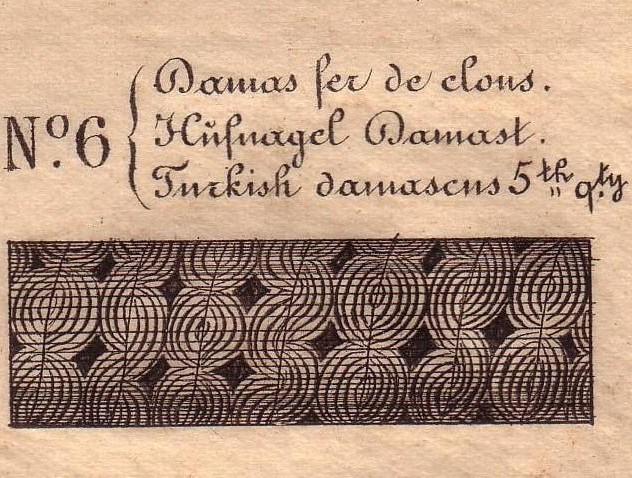 Nº. 6
Damas fer de clous.
Hŭfnagel Damast.
Turkish damascus 5th q.ty